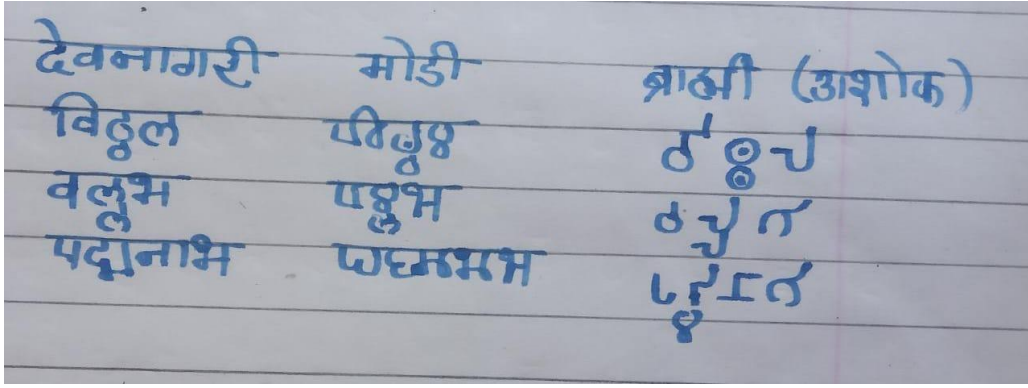 देवनागरी मोडी ब्राह्मी (अशोक)
विठ्ठल 𑘪𑘲𑘙𑘿𑘙𑘩 𑀯𑀺𑀣𑁆𑀣𑀮
वल्लभ 𑘪𑘩𑘿𑘩𑘥 𑀯𑀮𑁆𑀮𑀪
पद्मनाभ 𑘢𑘟𑘿𑘦𑘡𑘰𑘥 𑀧𑀤𑁆𑀫𑀦𑀸𑀪